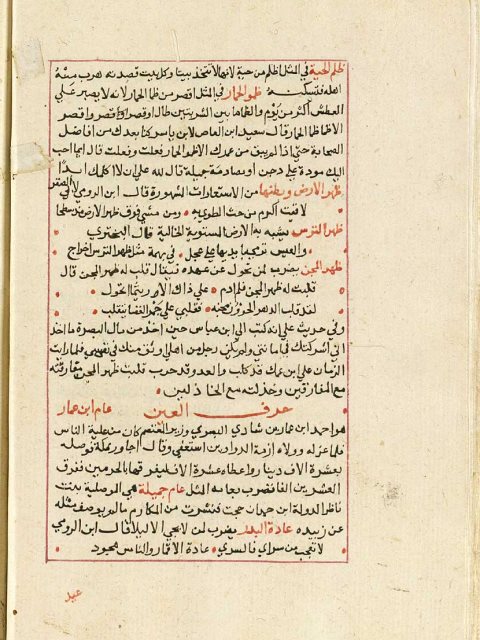 ظلم الحية في المثل اظلم من حية لانها لا تتخذ بيتا وكل بيت قصدته هرب منه
اهله فتسكنه ظمؤ الحمار في المثل اقصر من ظمأ الحمار لانه لا يصبر على
العطش اكثر من يوم والظما ما بين الشربتين طال او قصر واقصر
الاظما ظما الحمار قال سعيد ابن العاص لابن ياسر كنا نعدك من افاضل
الصحابة حتى اذا لم يبق من عمرك الا ظمؤ الحمار فعلت وفعلت قال ايما احب
اليك مودة على دخن او مصارمة جميلة قال لله علي ان لا اكلمك ابدا
ظهر الارض وبطنها من الاستعارات المشهورة قال ابن الرومي
لاقيت اكرم من حث المطي به ومن مشى فوق ظهر الارض
ظهر الترس يشبه به الارض المستوية الخالية قال البحتري
والعيس ترمي بايديها على عجل في مهمة مثل ظهر الترس
ظهر المجن يضرب لمن تحول عن عهده فيقال قلب له ظهر المجن قال
قلبت له ظهر المجن فلم ادم على ذاك الا ريثما اتحول
لقد قلب الدهر الخؤون مجنه فقلبي على جمر الغضا يتقلب
وفي حديث علي انه كتب الى ابن عباس حين اخذ من مال البصرة ما اخذ
اني اشركتك في امانتي ولم يكن رجل من اهلي اوثق منك في نفسي فلما رايت
الزمان على ابن عمك قد كلب والعدو قد حرب قلبت ظهر المجن بمفارقته
مع المفارقين وخذلته مع الخاذلين
حرف العين عام ابن عمار
هو احمد ابن عمار بن شاذي البصري وزير المعتصم كان من علية الناس
فلما عزله وولاه ازمة الدواوين استعفى وقال اجاور بمكة فوصله
بعشرة الاف دينار واعطاه عشرة الاف ليفرقها بالحرمين ففرق
العشرين الفا فضرب بعامه المثل عام جميلة هي الموصلية بنت
ناصر الدولة ابن حمدان حجت فنشرت من المكارم ما لم يوصف مثله
عن زبيدة عادة البدر يضرب لمن لا يجي الا ليلا قال ابن الرومي
لا تعجب من سراي فالسري عادة الاقمار والناس هجود